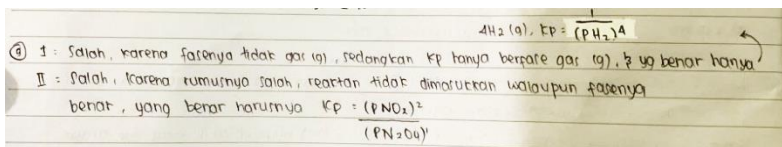 4H2 (g), Kp = 1 / (PH2)4
ⓐ I : Salah, karena fasenya tidak gas (g), sedangkan Kp hanya berfase gas (g), & yg benar hanya
II : Salah, karena rumusnya salah, reartan tidak dimasukkan walaupun fasenya
benar, yang benar harusnya Kp = (PNO2)2
(PN2O4)1